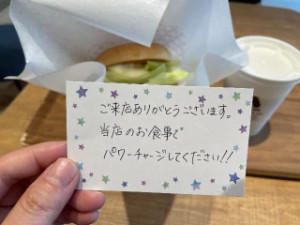 ご来店ありがとうございます。
当店のお食事で
パワーチャージしてください!!